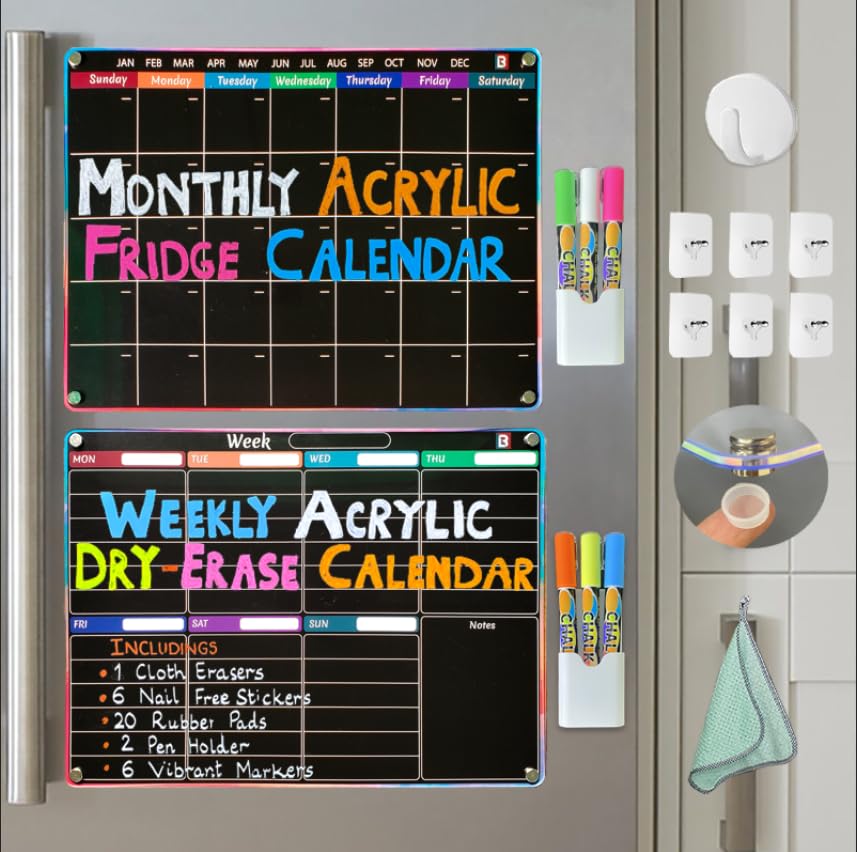 JAN FEB MAR APR MAY JUN JUL AUG SEP OCT NOV DEC B
Sunday Monday Tuesday Wednesday Thursday Friday Saturday
MONTHLY ACRYLIC
FRIDGE CALENDAR
CHALK CHALK
Week B
MON TUE WED THU
WEEKLY ACRYLIC
DRY-ERASE CALENDAR
CHALK CHALK
FRI SAT SUN Notes
INCLUDINGS
• 1 Cloth Erasers
• 6 Nail Free Stickers
• 20 Rubber Pads
• 2 Pen Holder
• 6 Vibrant Markers